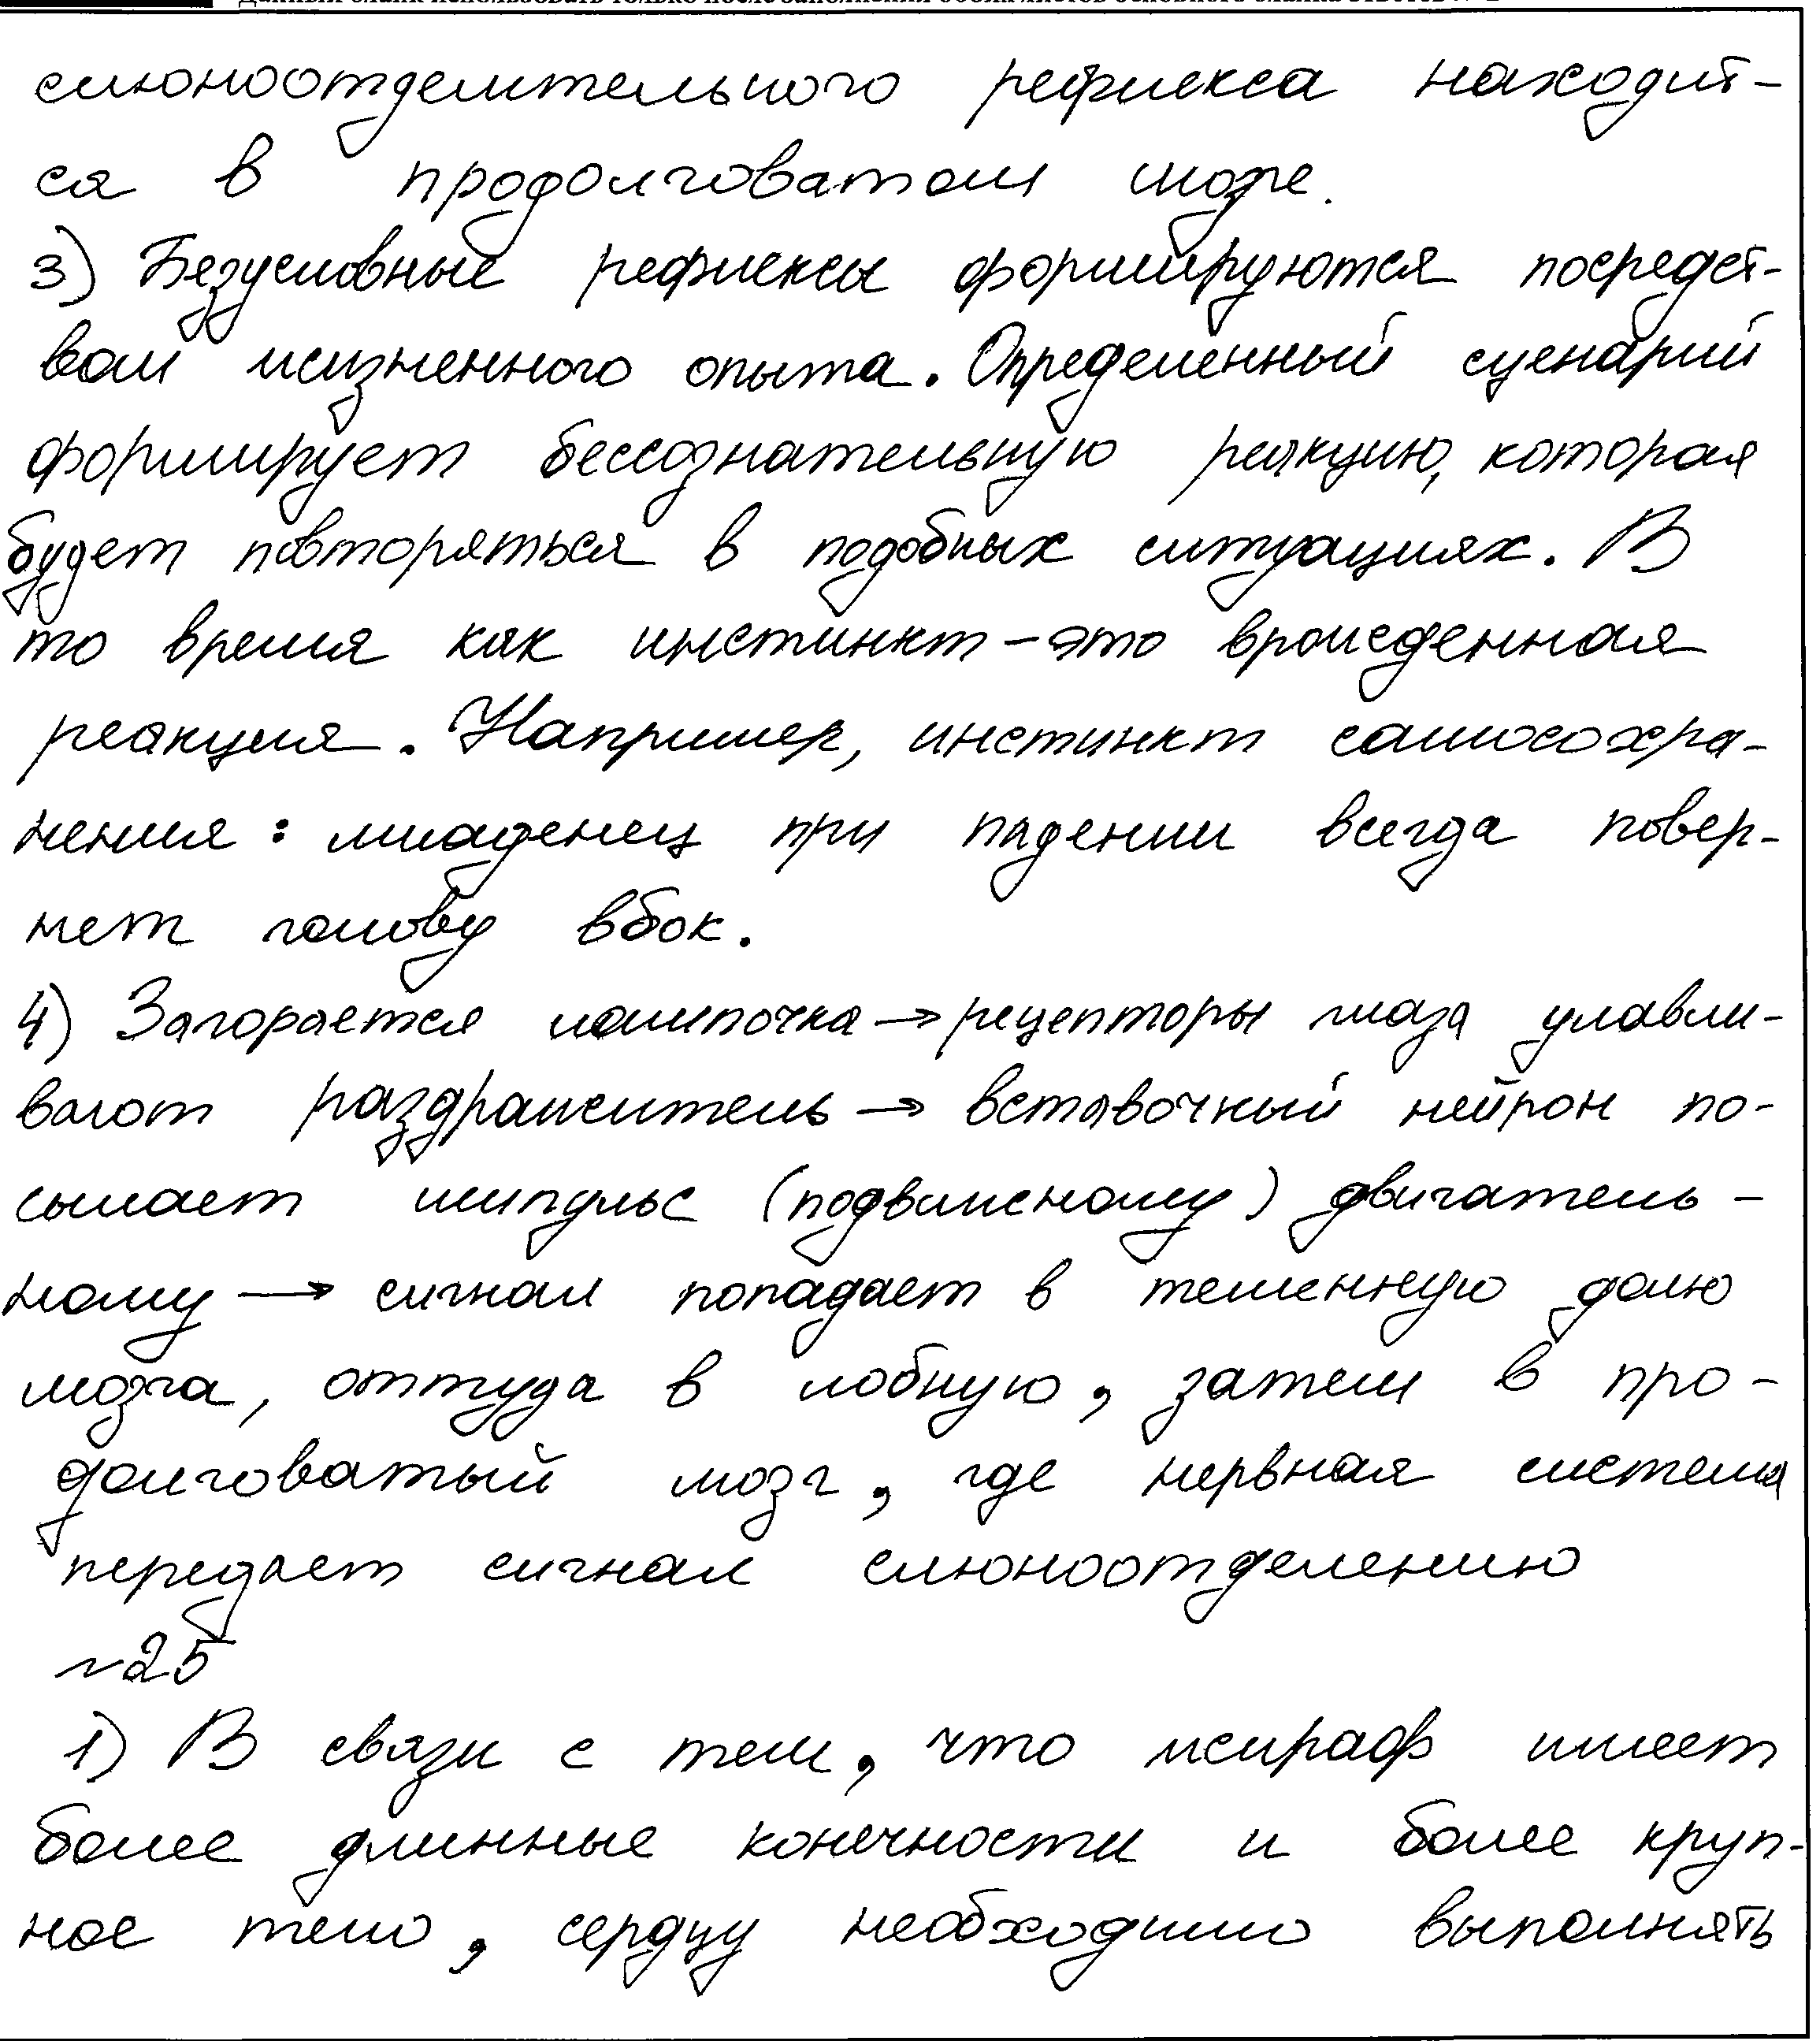 слюноотделительного рефлекса находит-
ся в продолговатом мозге.
3) Безусловные рефлексы формируются посредст-
вом жизненного опыта. Определенный сценарий
формирует бессознательную реакцию, которая
будет повторяться в подобных ситуациях. В
то время как инстинкт – это врожденная
реакция. Например, инстинкт самосохра-
нения: младенец при падении всегда повер-
нет голову вбок.
4) Загорается лампочка → рецепторы глаза улавли-
вают раздражитель → вставочный нейрон по-
сылает импульс (подвижному) двигатель-
ному → сигнал попадает в теменную долю
мозга, оттуда в лобную, затем в про-
долговатый мозг, где нервная система
передает сигнал слюноотделению
~25
1) В связи с тем, что жираф имеет
более длинные конечности и более круп-
ное тело, сердцу необходимо выполнять